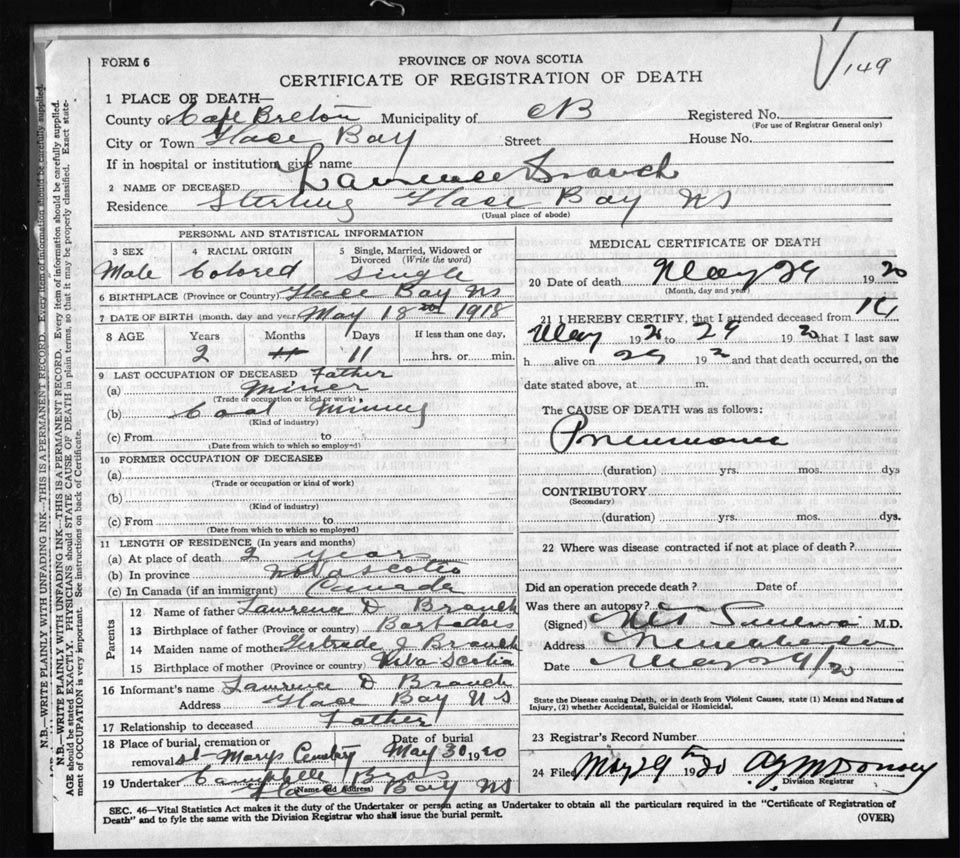 149
FORM 6
PROVINCE OF NOVA SCOTIA
CERTIFICATE OF REGISTRATION OF DEATH
1 PLACE OF DEATH—
County of Cape Breton Municipality of CB Registered No.
(For use of Registrar General only)
City or Town Glace Bay Street House No.
If in hospital or institution, give name
2 NAME OF DECEASED Lawrence Branch
Residence Sterling Glace Bay NS
(Usual place of abode)
PERSONAL AND STATISTICAL INFORMATION
3 SEX 4 RACIAL ORIGIN 5 Single, Married, Widowed or Divorced (Write the word)
Male Colored Single
6 BIRTHPLACE (Province or Country) Glace Bay NS
7 DATE OF BIRTH (month, day and year) May 18 1918
8 AGE Years Months Days If less than one day,
2 11 11 hrs. or min.
9 LAST OCCUPATION OF DECEASED Father
(a) Miner
(Trade or occupation or kind of work)
(b) Coal Mining
(Kind of industry)
(c) From to
(Date from which to which so employed)
10 FORMER OCCUPATION OF DECEASED
(a)
(Trade or occupation or kind of work)
(b)
(Kind of industry)
(c) From to
(Date from which to which so employed)
11 LENGTH OF RESIDENCE (In years and months)
(a) At place of death 2 years
(b) In province Nova Scotia
(c) In Canada (if an immigrant) Canada
Parents
12 Name of father Lawrence D Branch
13 Birthplace of father (Province or country) Barbados
14 Maiden name of mother Gertrude J Branch
15 Birthplace of mother (Province or country) Nova Scotia
16 Informant's name Lawrence D Branch
Address Glace Bay NS
17 Relationship to deceased Father
18 Place of burial, cremation or removal St Marys Date of burial May 30 1920
19 Undertaker Campbell Bros
(Name and Address) Glace Bay NS
MEDICAL CERTIFICATE OF DEATH
20 Date of death May 29 1920
(Month, day and year)
21 I HEREBY CERTIFY, that I attended deceased from
May 192 to 29 1920 that I last saw
h alive on 29 192 and that death occurred, on the
date stated above, at m.
The CAUSE OF DEATH was as follows:
Pneumonia
(duration) yrs. mos. dys
CONTRIBUTORY
(Secondary)
(duration) yrs. mos. dys.
22 Where was disease contracted if not at place of death?
Did an operation precede death? Date of
Was there an autopsy?
(Signed) M.D.
Address
Date May 29/20
State the Disease causing Death, or in death from Violent Causes, state (1) Means and Nature of
Injury, (2) whether Accidental, Suicidal or Homicidal.
23 Registrar's Record Number
24 Filed May 29th 1920
Division Registrar
SEC. 46—Vital Statistics Act makes it the duty of the Undertaker or person acting as Undertaker to obtain all the particulars required in the "Certificate of Registration of
Death" and to fyle the same with the Division Registrar who shall issue the burial permit.
(OVER)
N.B.—WRITE PLAINLY WITH UNFADING INK—THIS IS A PERMANENT RECORD. Every item of information should be carefully supplied.
N.B.—WRITE PLAINLY WITH UNFADING INK—THIS IS A PERMANENT RECORD. Every item of information should be carefully supplied.
AGE should be stated EXACTLY. PHYSICIANS should STATE CAUSE OF DEATH in plain terms, so that it may be properly classified. Exact state-
ment of OCCUPATION is very important. See instructions on back of Certificate.